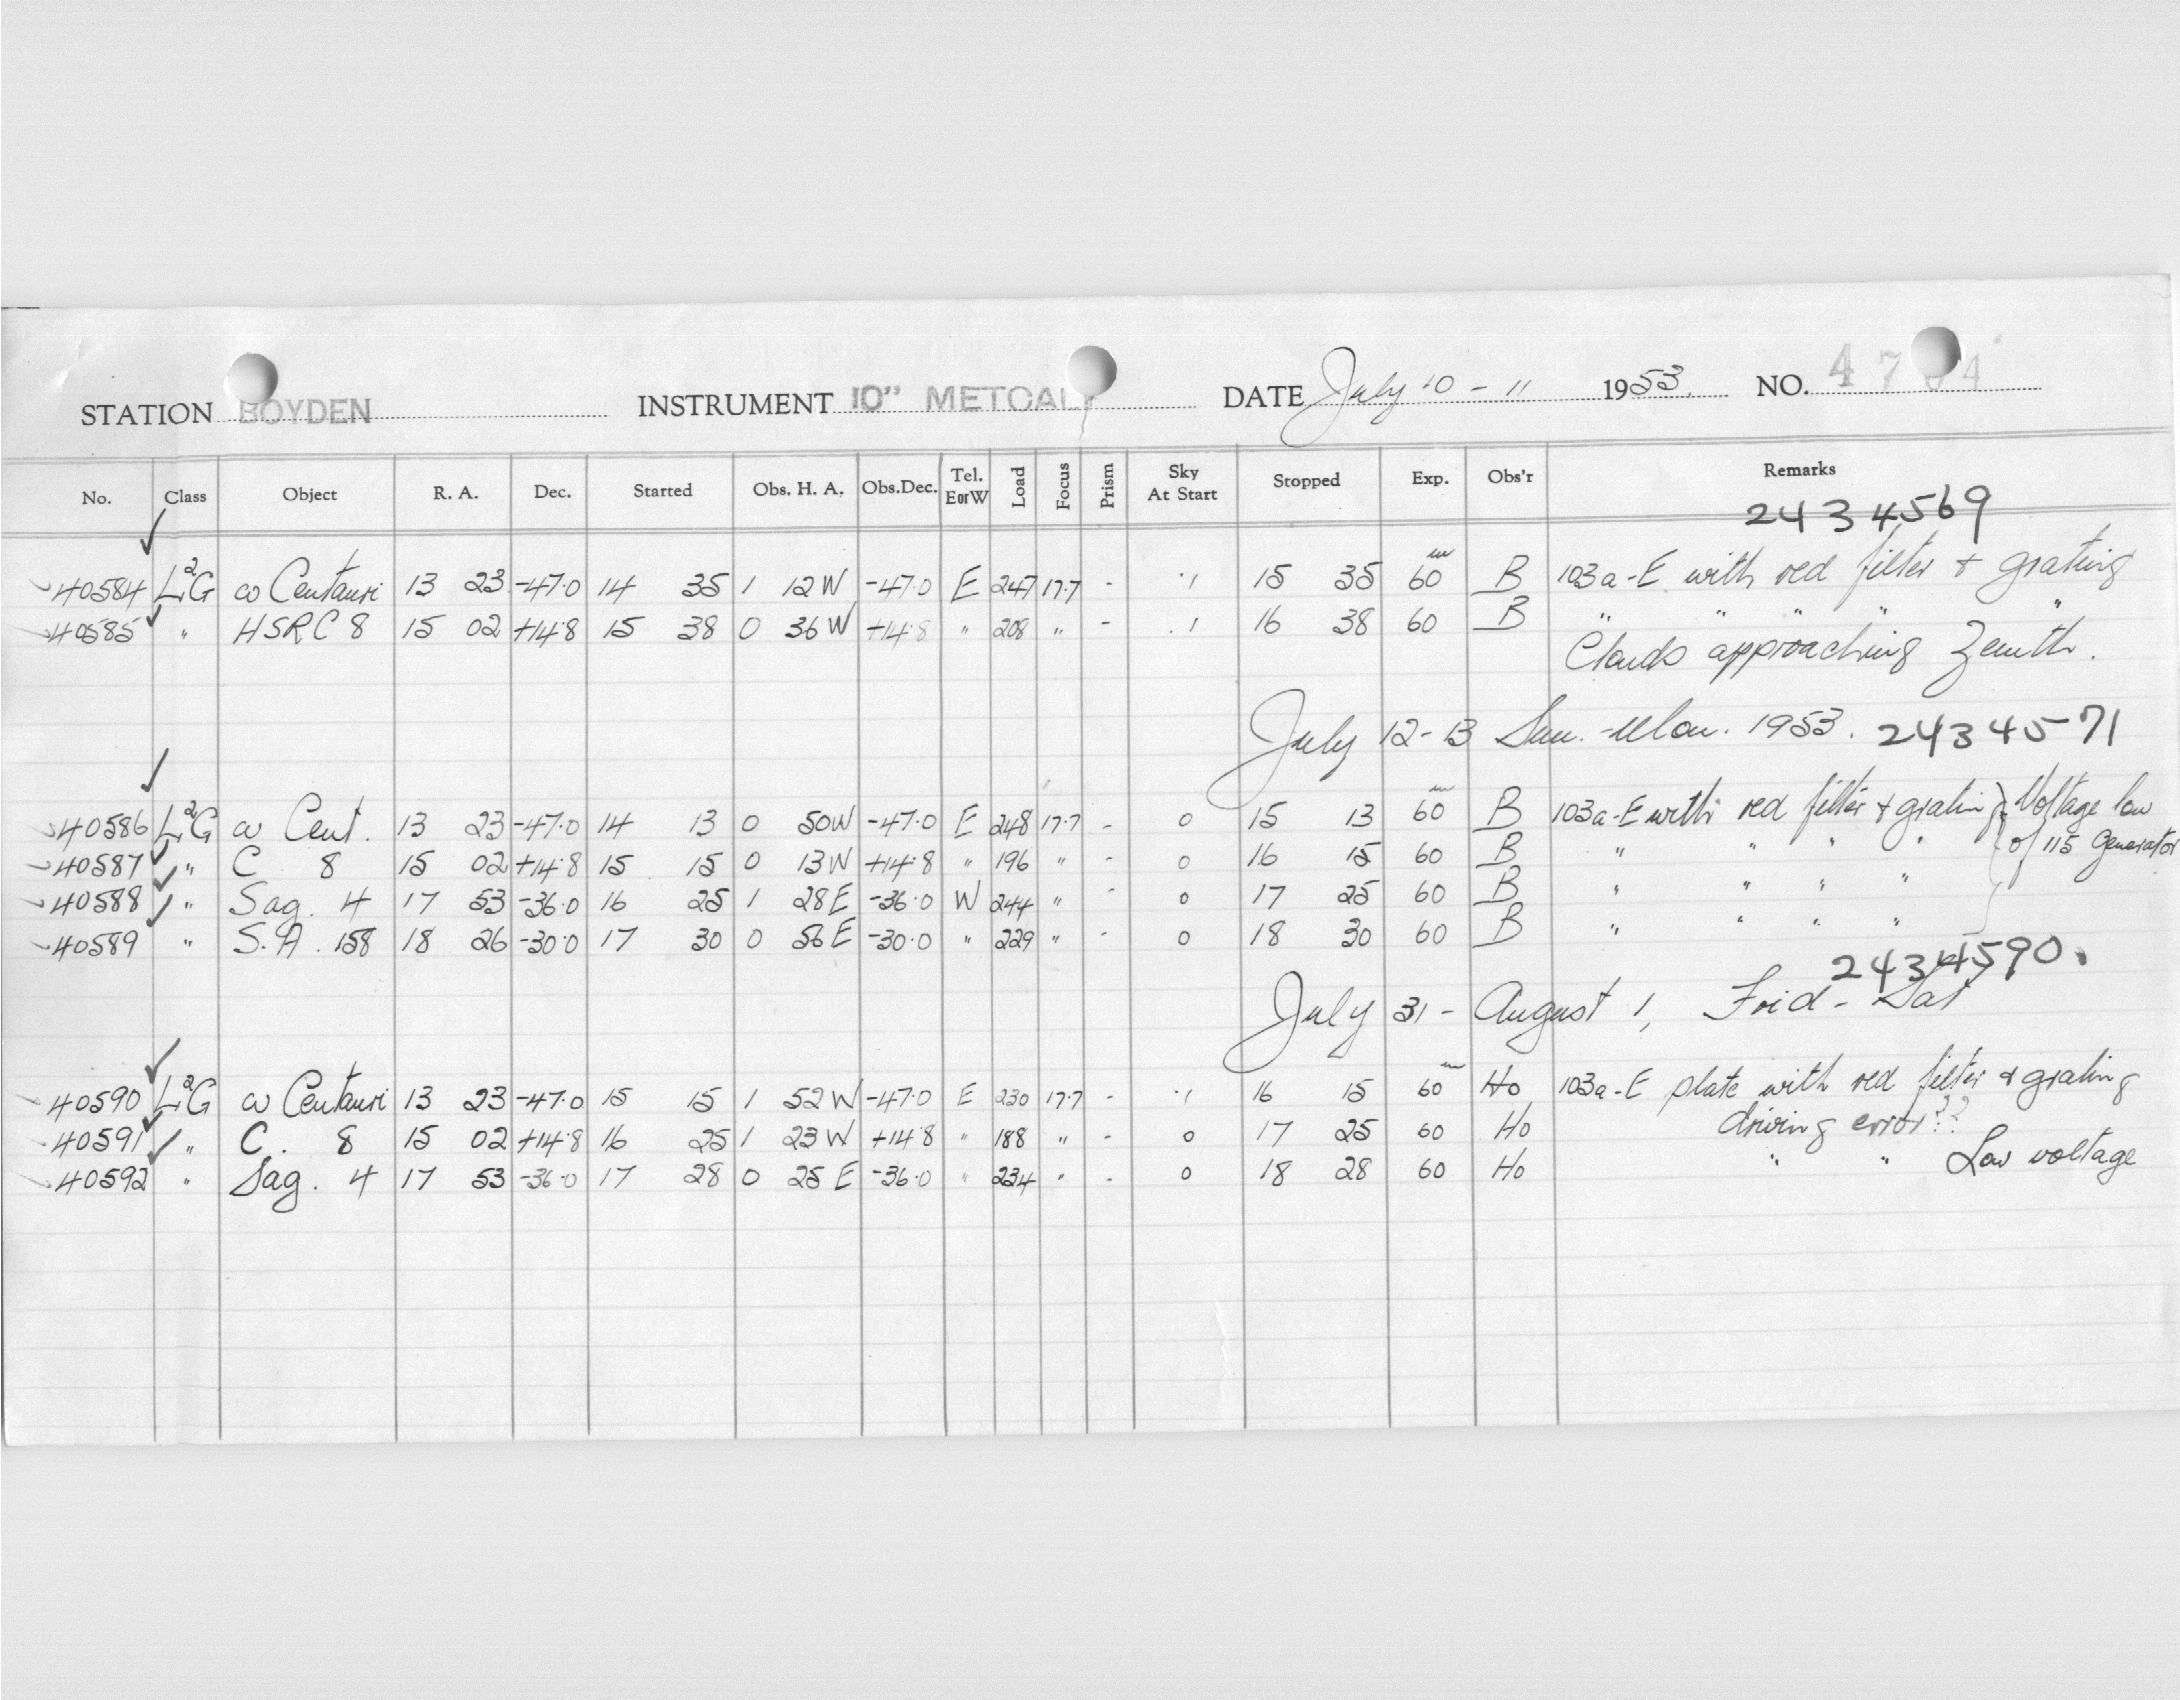 STATION BOYDEN INSTRUMENT 10" METCALF DATE July 10 - 11 1953. NO. 47 4
No. Class Object R. A. Dec. Started Obs. H. A. Obs. Dec. Tel. E or W Load Focus Prism Sky At Start Stopped Exp. Obs'r Remarks
2434569
40584 L²G ω Centauri 13 23 -47.0 14 35 1 12W -47.0 E 247 17.7 - .1 15 35 60m B 103a-E with red filter + grating
40585 " HSRC 8 15 02 +14.8 15 38 0 36W +14.8 " 208 " - .1 16 38 60 B " " " " "
Clouds approaching Zenith.
July 12-13 Sun.-Mon. 1953. 2434571
40586 L²G ω Cent. 13 23 -47.0 14 13 0 50W -47.0 E 248 17.7 - 0 15 13 60m B 103a-E with red filter + gratin } Voltage low
40587 " C 8 15 02 +14.8 15 15 0 13W +14.8 " 196 " - 0 16 15 60 B " " " " of 115 Generator
40588 " Sag. 4 17 53 -36.0 16 25 1 28E -36.0 W 244 " - 0 17 25 60 B " " " "
40589 " S.A. 158 18 26 -30.0 17 30 0 56E -30.0 " 229 " - 0 18 30 60 B " " " "
2434590.
July 31 - August 1, Frid - Sat
40590 L²G ω Centauri 13 23 -47.0 15 15 1 52W -47.0 E 230 17.7 - .1 16 15 60m Ho 103a-E plate with red filter & grating
40591 " C. 8 15 02 +14.8 16 25 1 23W +14.8 " 188 " - 0 17 25 60 Ho driving error??
40592 " Sag. 4 17 53 -36.0 17 28 0 25E -36.0 " 234 " - 0 18 28 60 Ho " " Low voltage